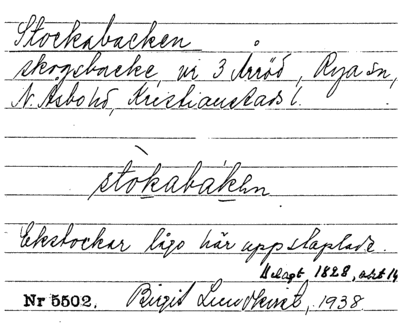 Stockabacken
skogsbacke vi 3 Årröd, Rya sn,
N. Åsbo hd, Kristianstads l.
stòkabákhn
Ekstockar lågo här uppstaplade.
Uelagt 1828, akt 14
Nr 5502. Birgit Lundkvist, 1938.